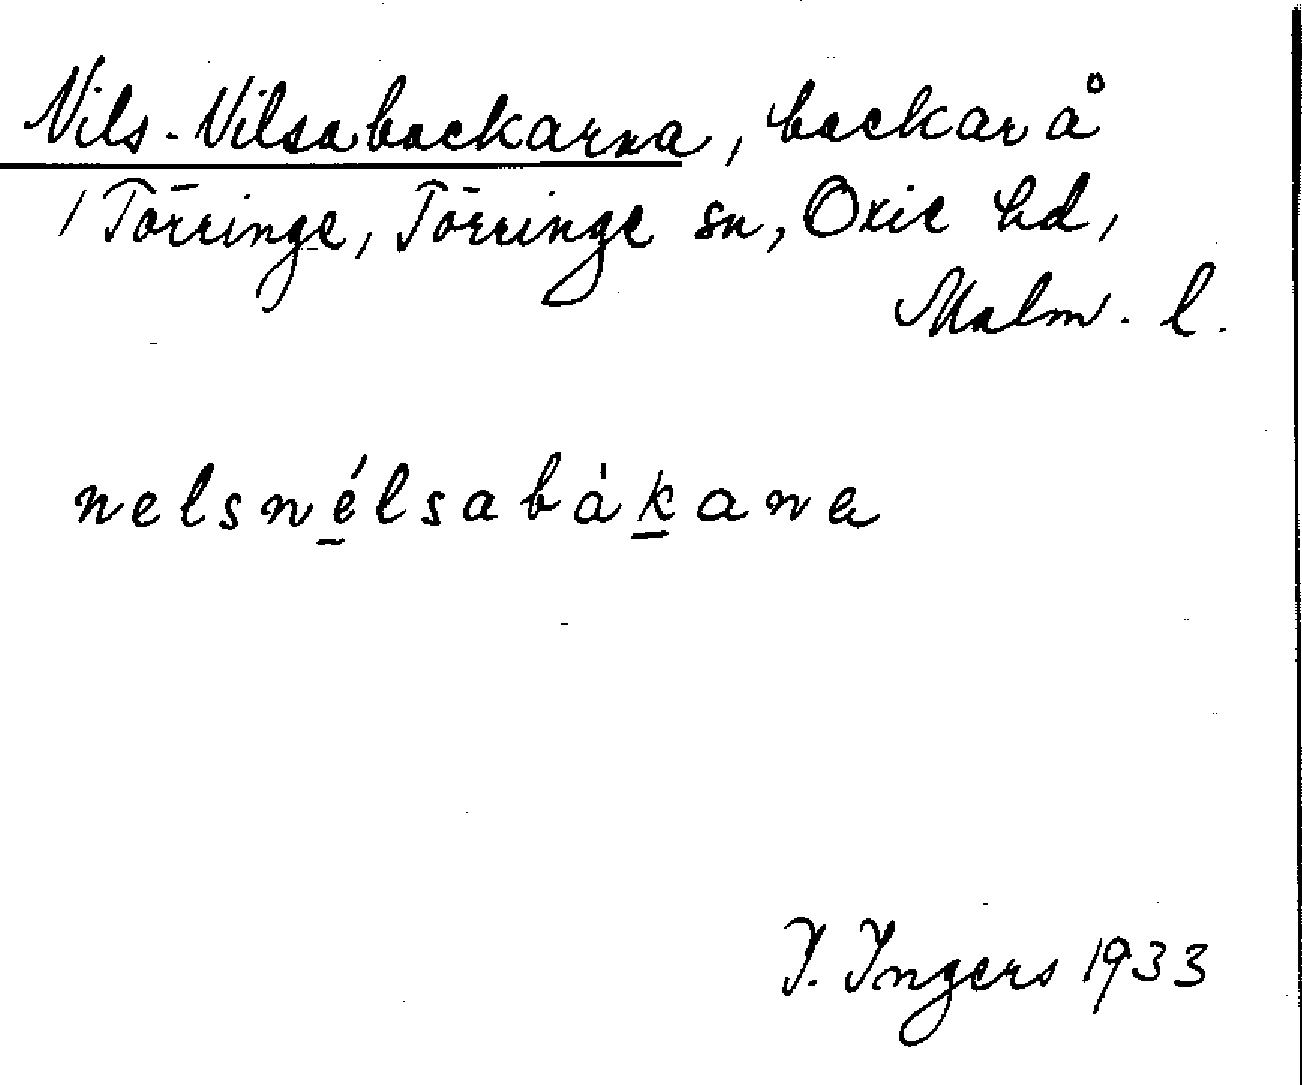 Nils-Nilsabackarna, backar å
/ Törringe, Törringe sn, Oxie hd,
Malm. l.
nelsnélsabákana
I. Ingers 1933